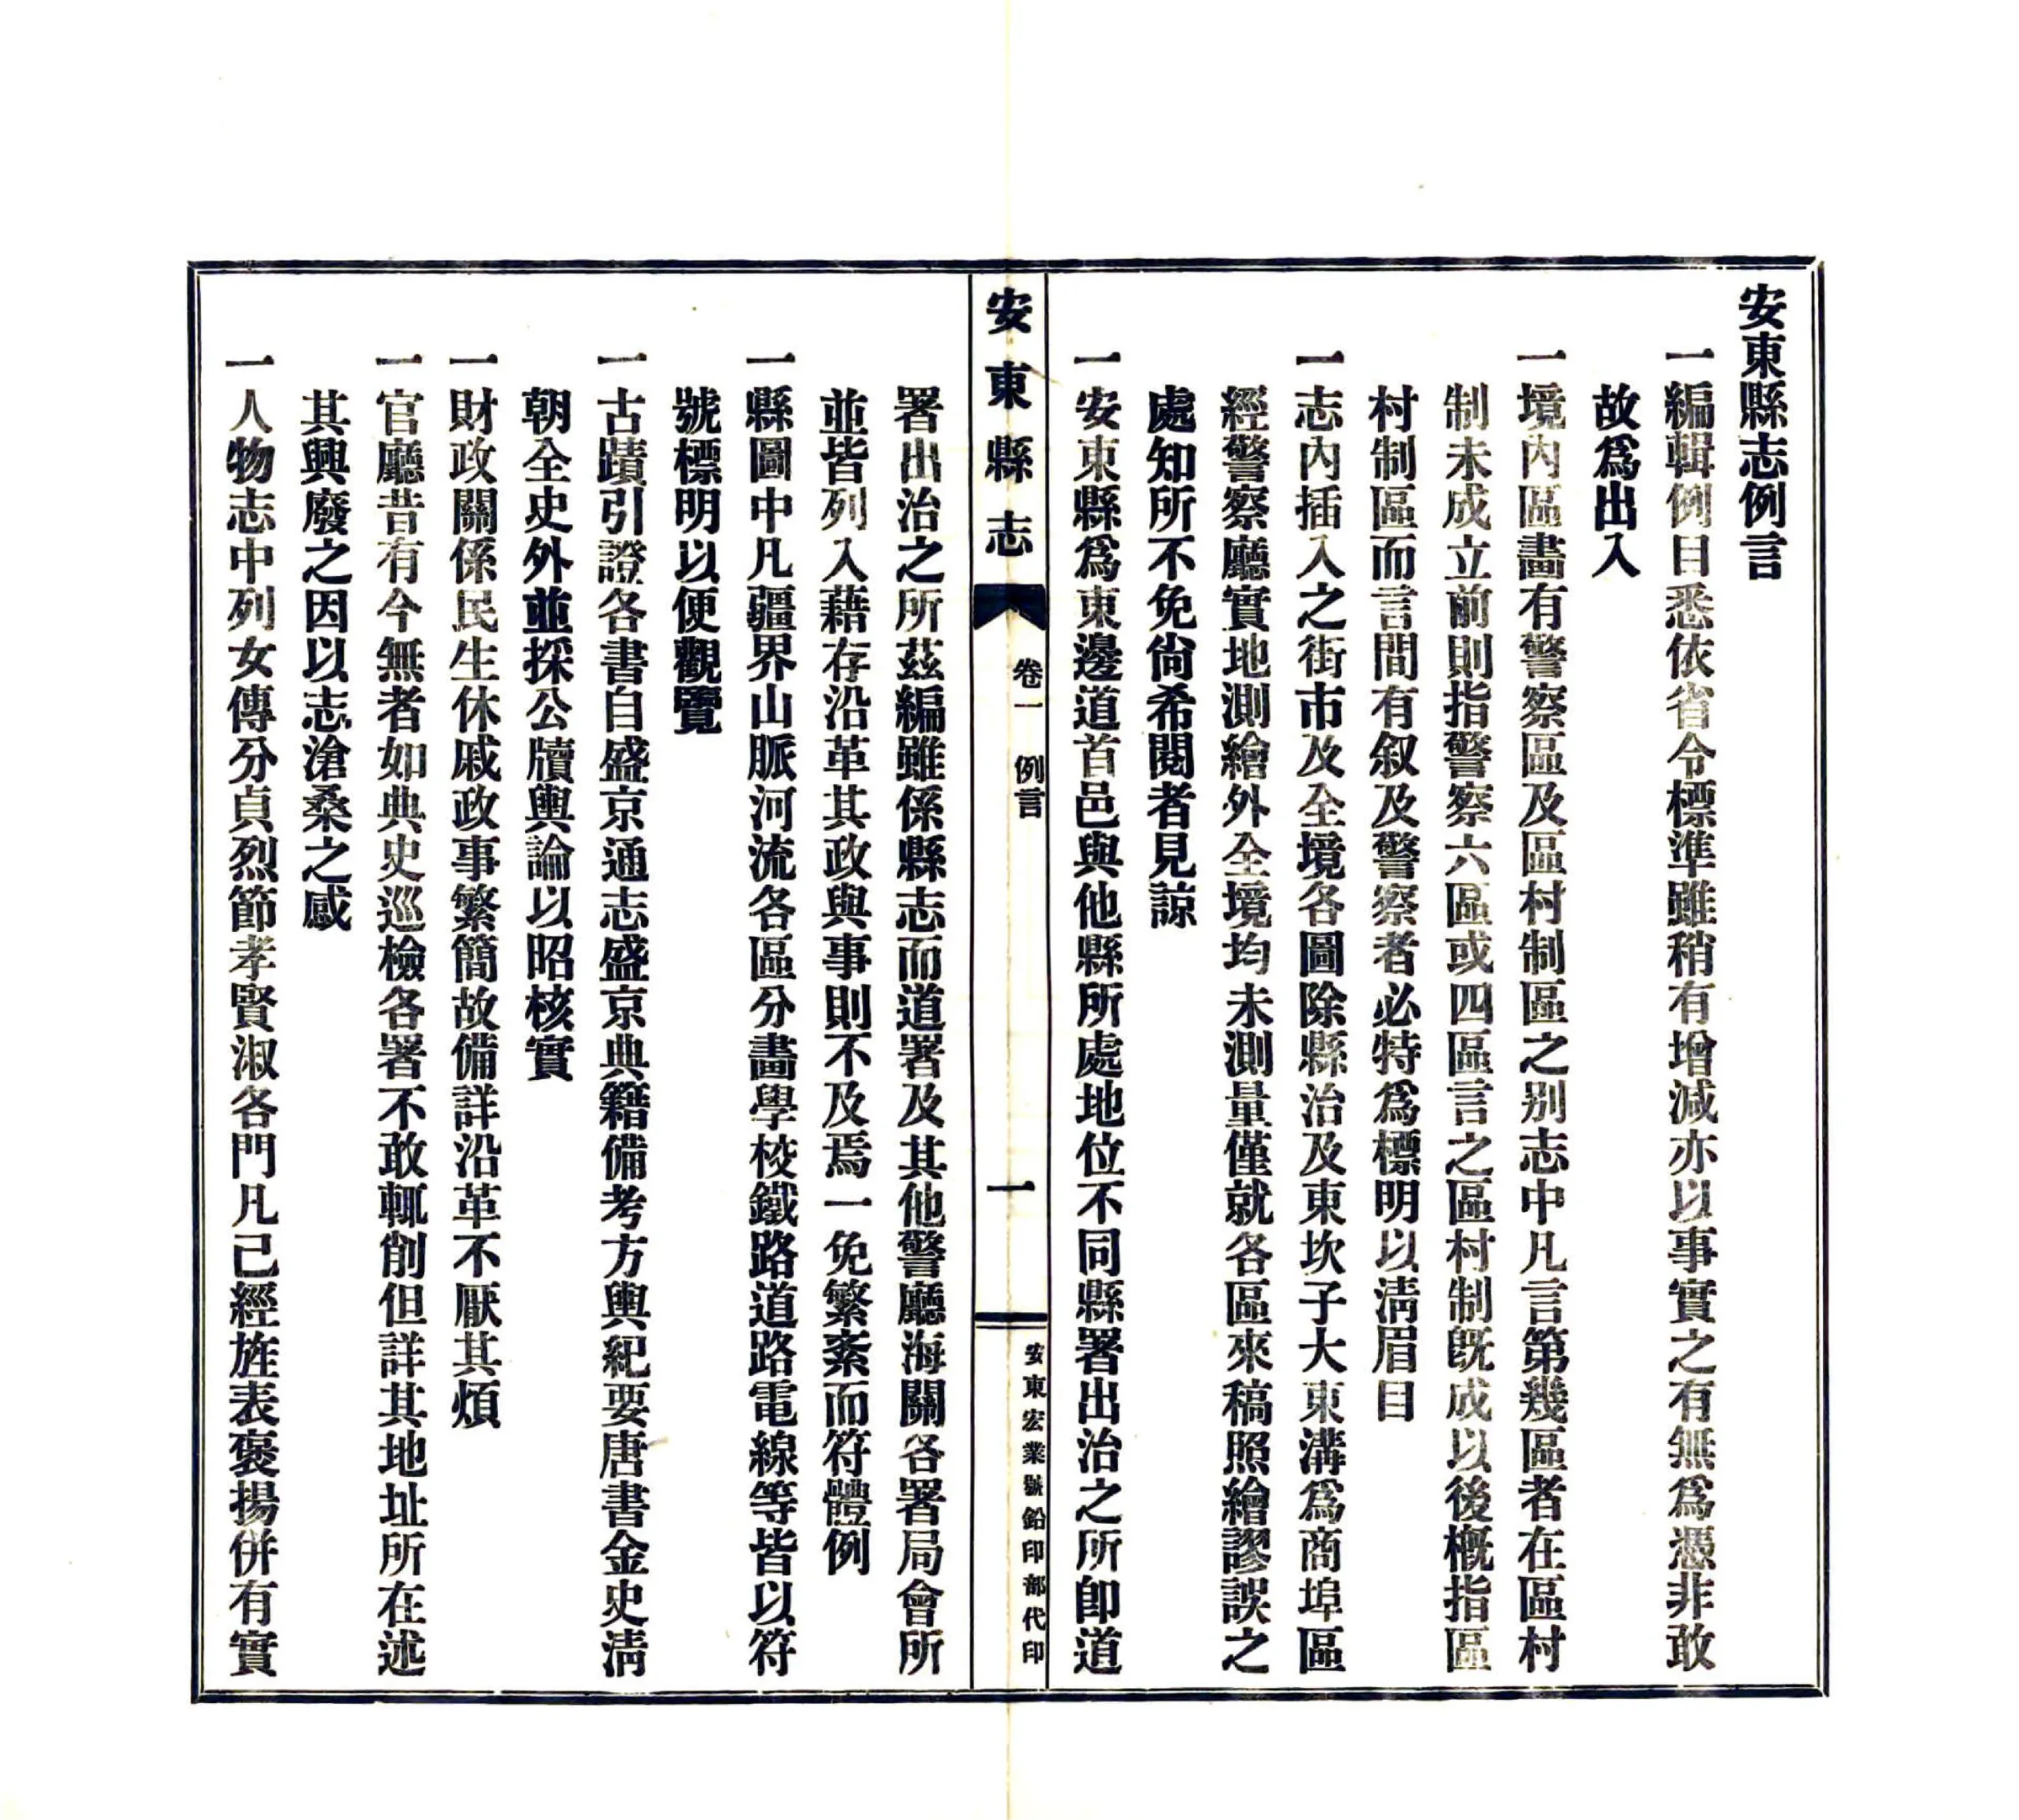 安東縣志例言
一編輯例目悉依省令標準雖稍有增减亦以事實之有無爲憑非敢
故爲出入
一境內區畫有警察區及區村制區之別志中凡言第幾區者在區村
制未成立前則指警察六區或四區言之區村制旣成以後槪指區
村制區而言間有叙及警察者必特爲標明以淸眉目
一志內插入之街市及全境各圖除縣治及東坎子大東溝爲商埠區
經警察廳實地測繪外全境均未測量僅就各區來稿照繪謬誤之
處知所不免尙希閱者見諒
一安東縣爲東邊道首邑與他縣所處地位不同縣署出治之所卽道
安東縣志
卷一 例言
一
安東宏業號鉛印部代印
署出治之所茲編雖係縣志而道署及其他警廳海關各署局會所
並皆列入藉存沿革其政與事則不及焉一免繁紊而符體例
一縣圖中凡疆界山脈河流各區分畫學校鐵路道路電線等皆以符
號標明以便觀覽
一古蹟引證各書自盛京通志盛京典籍備考方輿紀要唐書金史淸
朝全史外並採公牘輿論以昭核實
一財政關係民生休戚政事繁簡故備詳沿革不厭其煩
一官廳昔有今無者如典史巡檢各署不敢輒削但詳其地址所在述
其興廢之因以志滄桑之感
一人物志中列女傳分貞烈節孝賢淑各門凡已經旌表褒揚併有實